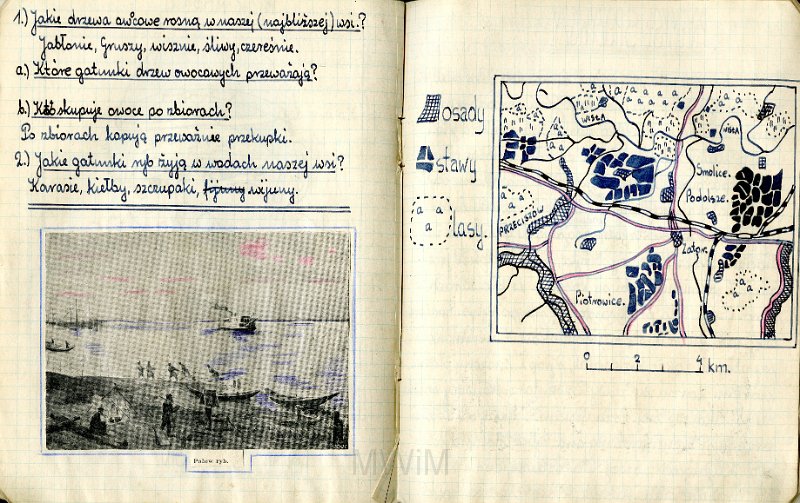 1.) Jakie drzewa owocowe rosną w naszej (najbliższej) wsi.?
Jabłonie, Gruszy, wisznie, śliwy, czereśnie.
a.) Które gatunki drzew owocowych przeważają?
b.) Kto skupuje owoce po zbiorach?
Po zbiorach kupują przeważnie przekupki.
2.) Jakie gatunki ryb żyją w wodach naszej wsi?
Karasie, kiełby, szczupaki, wijuny.
Połów ryb.
osady
stawy
lasy.
WISŁA
WISŁA
Smolice.
Podolsze.
PRZECISZÓW
Zator.
Piotrowice.
0 2 4 km.
MWiM